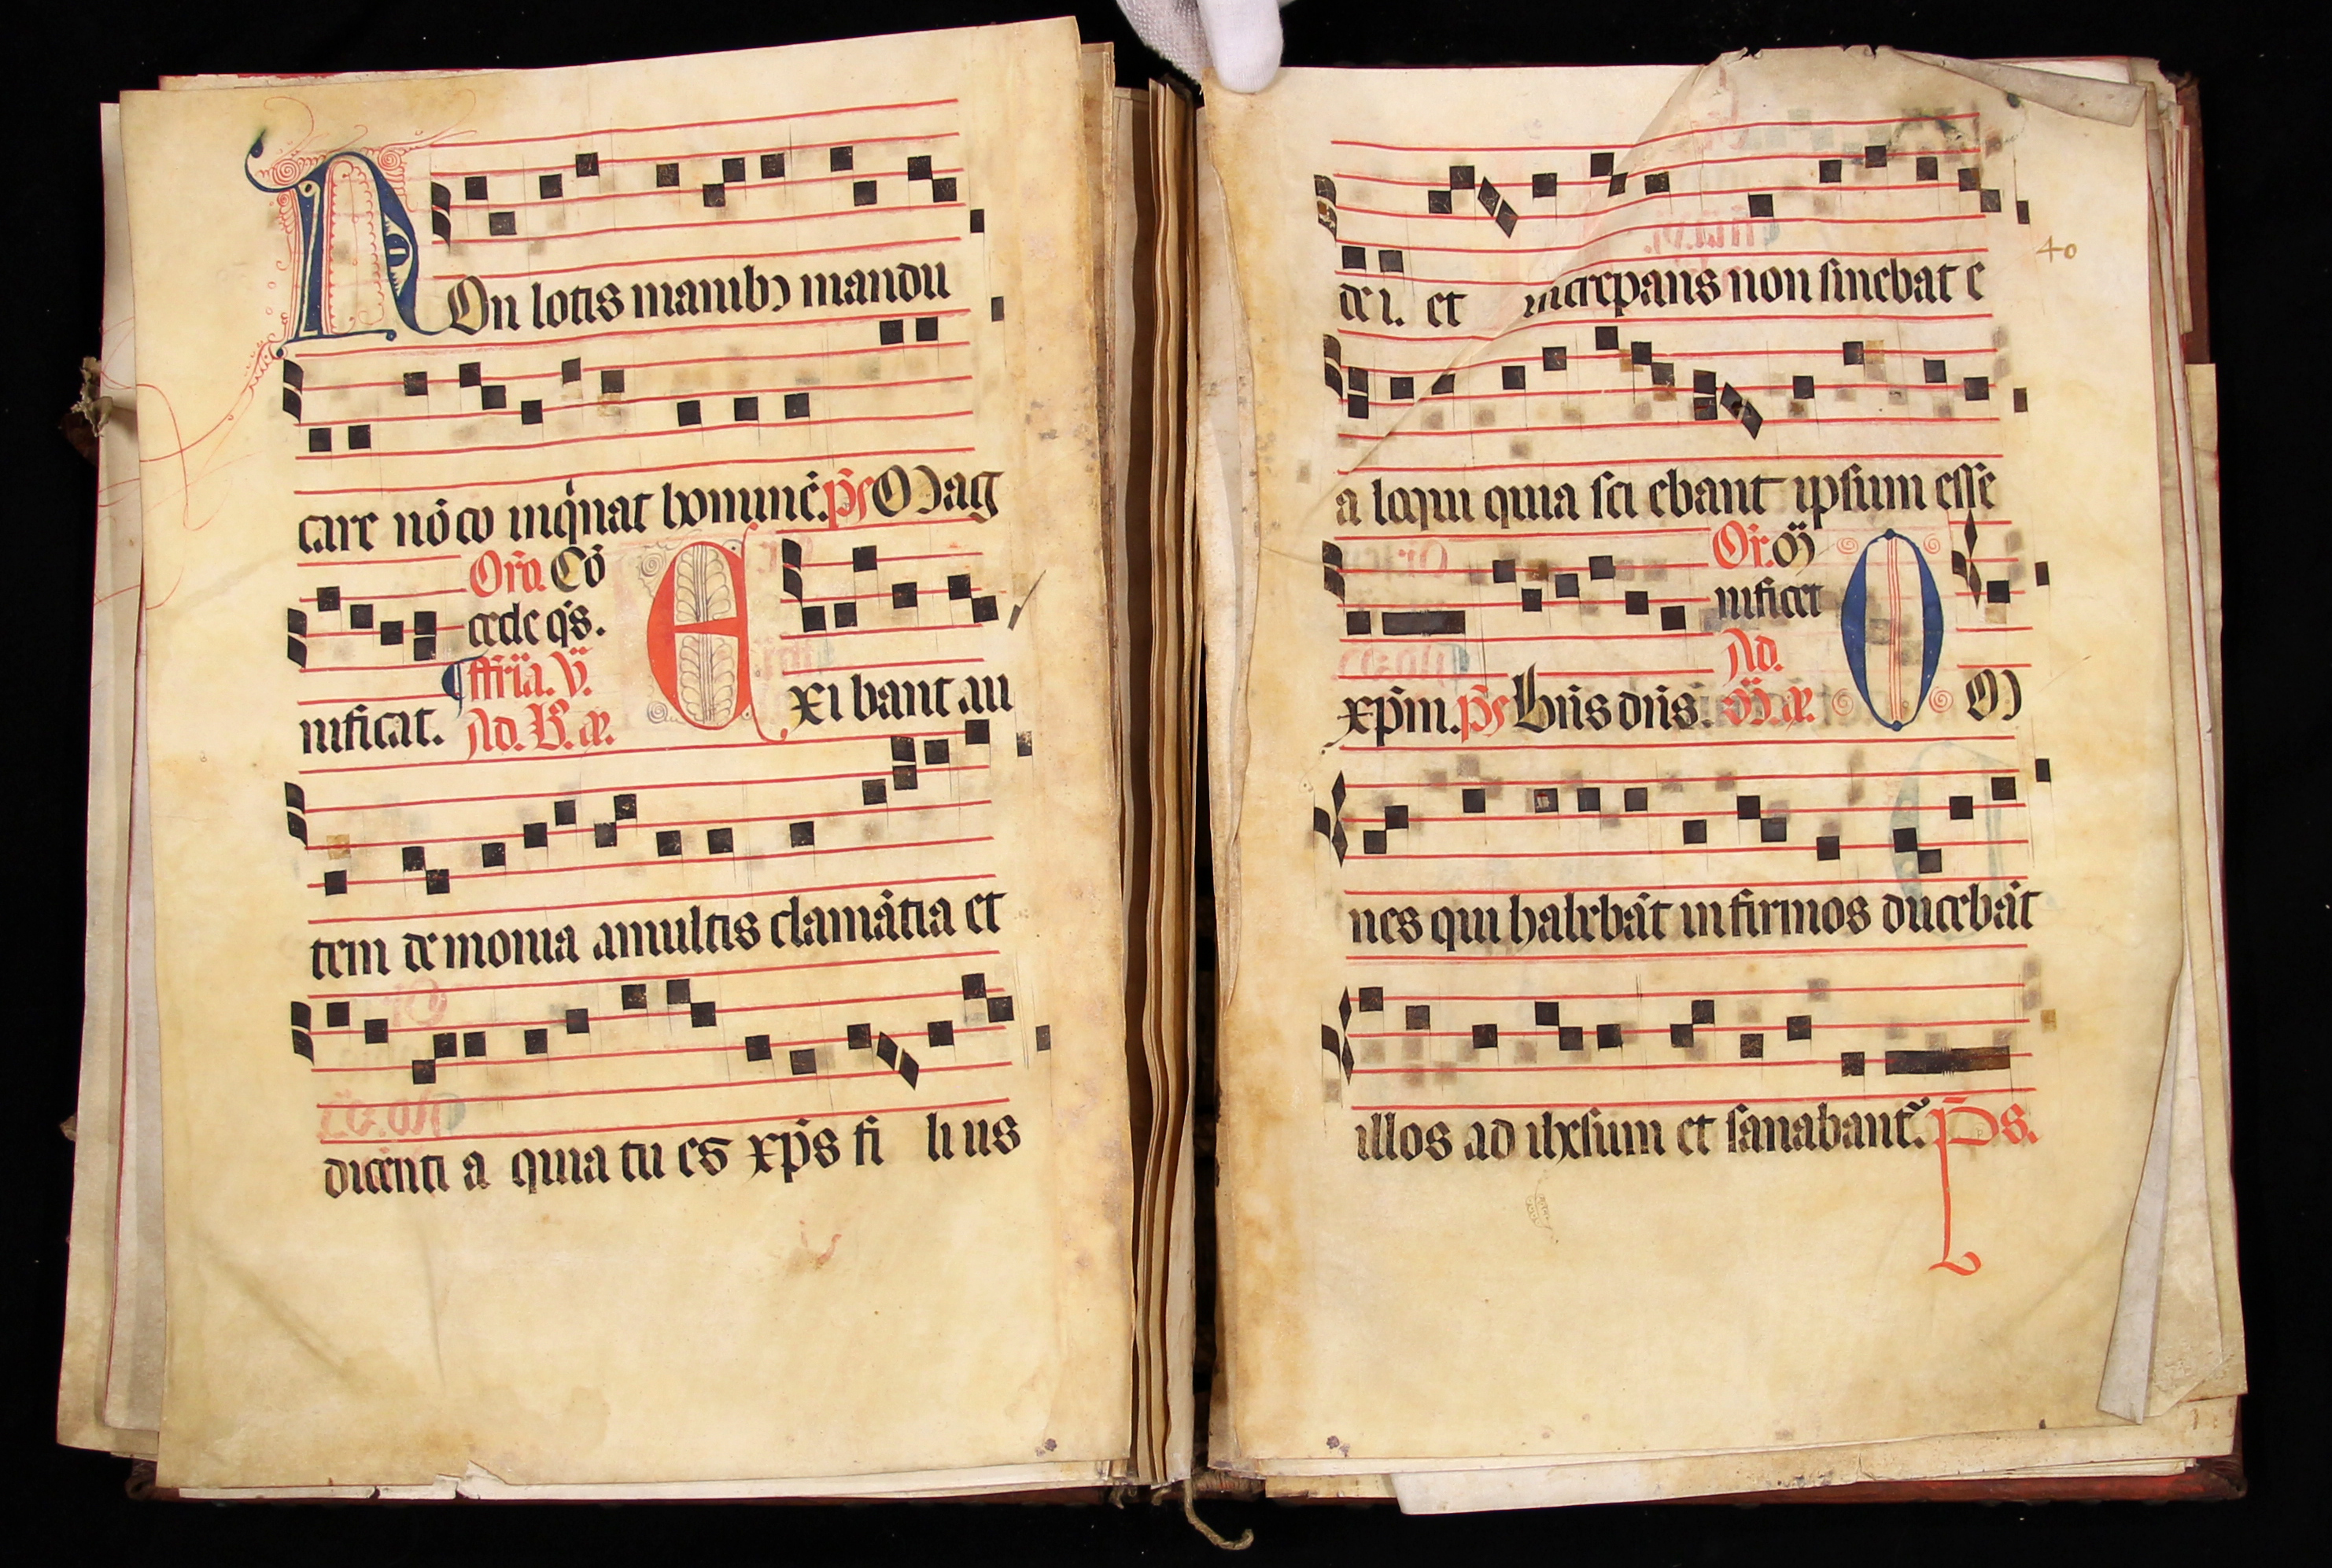 NOn lotis manibꝰ mandu
care nō co inqͥnat hominē. p̄s Mag
Orō. Cō
cede qs̄.
¶ ffria. v̄.
nificat. Ad. B. añ. Exi bant au
tem de monia amultis clamātia et
dicenti a quia tu es xp̄s fi li us
40
de i. et increpans non sinebat e
a loqui quia sci ebant ipsum esse
Or̄. M̄
nificet
Ad.
xp̄m. p̄s Bn̄s dn̄s. M̄. añ. OM
nes qui habebāt infirmos ducebāt
illos ad ihesum et sanabant᷑. Ps.